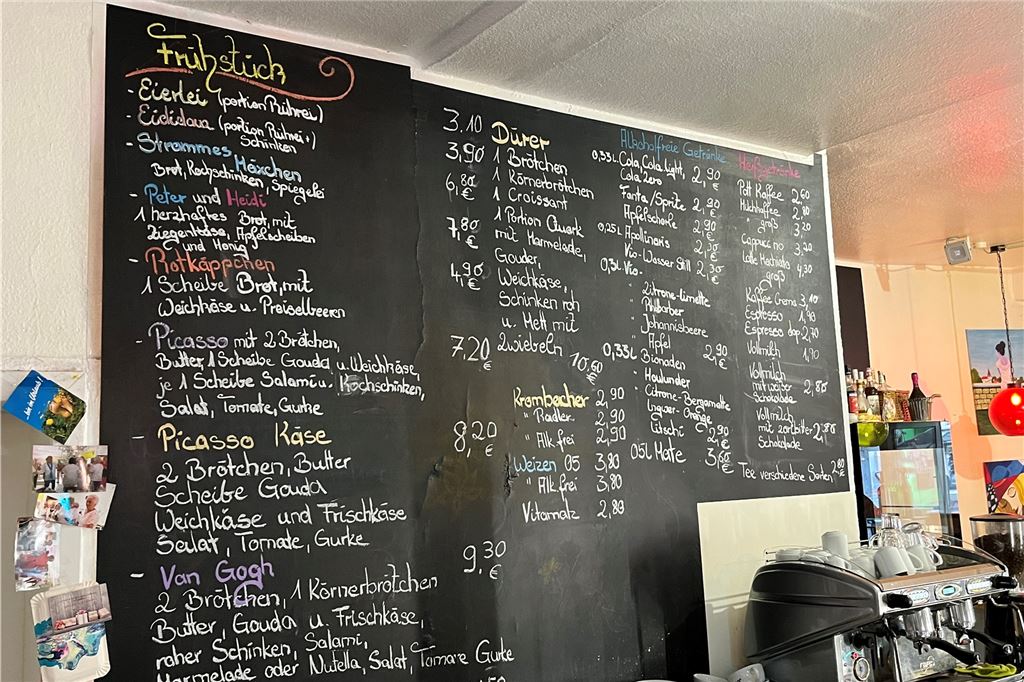 Frühstück
- Eierlei (portion Rührei)
3.10
- Eidislava (portion Rührei +)
Schinken
3,90
- Strammes Mäxchen
Brot, Kochschinken, Spiegelei
6,80 €
- Peter und Heidi
1 herzhaftes Brot, mit
Ziegenkäse, Apfelscheiben
und Honig
7,80 €
- Rotkäppchen
1 Scheibe Brot, mit
Weichkäse u. Preiselbeern
4,90 €
- Picasso mit 2 Brötchen,
Butter, 1 Scheibe Gouda u. Weichkäse,
je 1 Scheibe Salami u. Kochschinken,
Salat, Tomate, Gurke
7,20 €
- Picasso Käse
2 Brötchen, Butter
Scheibe Gouda
Weichkäse und Frischkäse
Salat, Tomate, Gurke
8,20 €
- Van Gogh
2 Brötchen, 1 Körnerbrötchen
Butter, Gouda u. Frischkäse,
roher Schinken, Salami,
Marmelade oder Nutella, Salat, Tomate Gurke
9,30 €
Dürer
1 Brötchen
1 Körnerbrötchen
1 Croissant
1 Portion Quark
mit Marmelade,
Gouder,
Weichkäse,
Schinken roh
u. Mett mit
Zwiebeln
10,60 €
Krombacher 2,90
" Radler 2,90
" Alk.frei 2,90
Weizen 05 3,80
" Alk.frei 3,80
Vitamalz 2,80
Alkoholfreie Getränke
0,33L Cola, Cola light,
Cola zero 2,90 €
Fanta / Sprite 2,90
Apfelschorle €
0,25L Apollinaris 2,30
Vio-Wasser Still 2,30 €
0,3L Vio-
" Zitrone-Limette
" Rhbarber
" Johannisbeere
" Apfel 2,90 €
0,33L Bionaden
" Holunder
Citrone-Bergamotte
Ingwer-Orange
Litschi 2,90 €
05L Mate 3,60 €
Heißgetränke
Pott Kaffee 2,60
Milchkaffee 2,80
groß 3,20
Cappuccino 3,20
Latte Machiato
groß 4,30
Kaffee Crema 3,10
Espresso 1,90
Espresso dop. 2,70
Vollmilch 1,70
Vollmilch
mit weißer
Schokolade 2,80
Vollmilch
mit zartbitter
Schokolade
Tee verschiedene Sorten 2,80 €